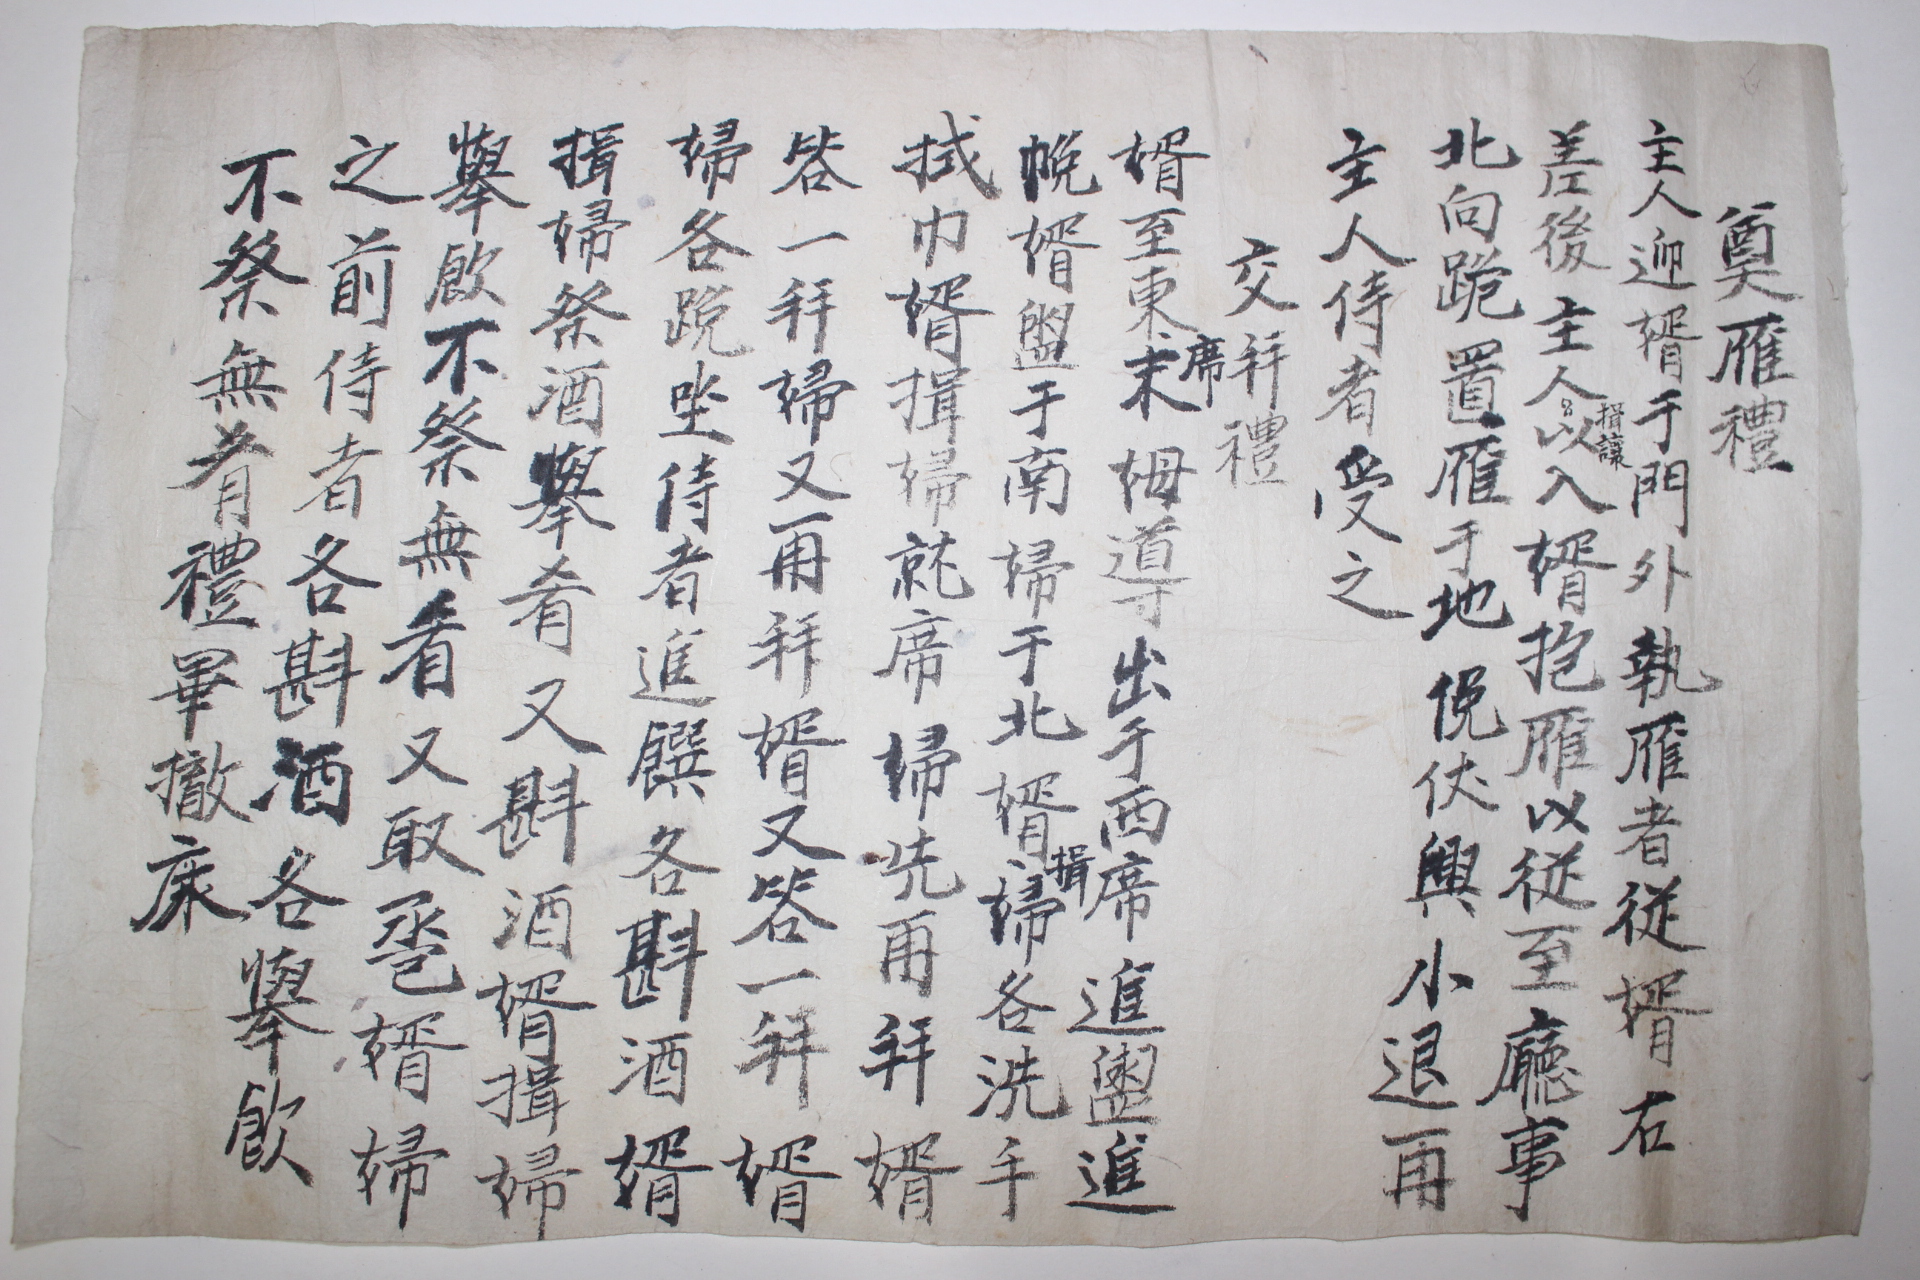 奠雁禮
主人迎壻于門外執雁者從壻右
差後主人揖讓以入壻抱雁以從至廳事
北向跪置雁于地俛伏興小退再
主人侍者受之
交拜禮
壻至東席末姆導出于西席進盥進
帨壻盥于南婦于北壻揖婦各洗手
拭巾壻揖婦就席婦先再拜壻
答一拜婦又再拜壻又答一拜壻
婦各跪坐侍者進饌各斟酒壻
揖婦祭酒擧肴又斟酒壻揖婦
擧飮不祭無肴又取巹壻婦
之前侍者各斟酒各擧飮
不祭無肴禮畢撤床